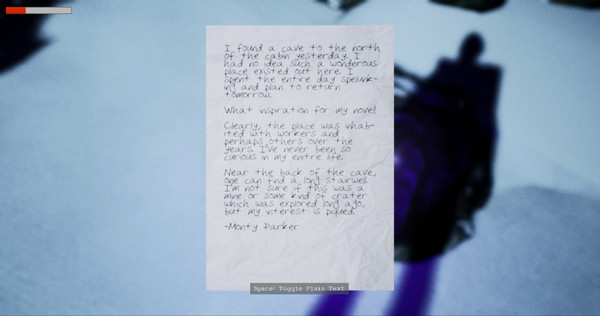 I found a cave to the north
of the cabin yesterday. I
had no idea such a wonderous
place existed out here. I
spent the entire day spelunk-
ing and plan to return
tomorrow.
What inspiration for my novel!
Clearly, the place was inhab-
ited with workers and
perhaps others over the
years. I've never been so
curious in my entire life.
Near the back of the cave,
one can find a long stairwell.
I'm not sure if this was a
mine or some kind of crater
which was explored long ago,
but my interest is piqued.
-Monty Parker
Space: Toggle Plain Text